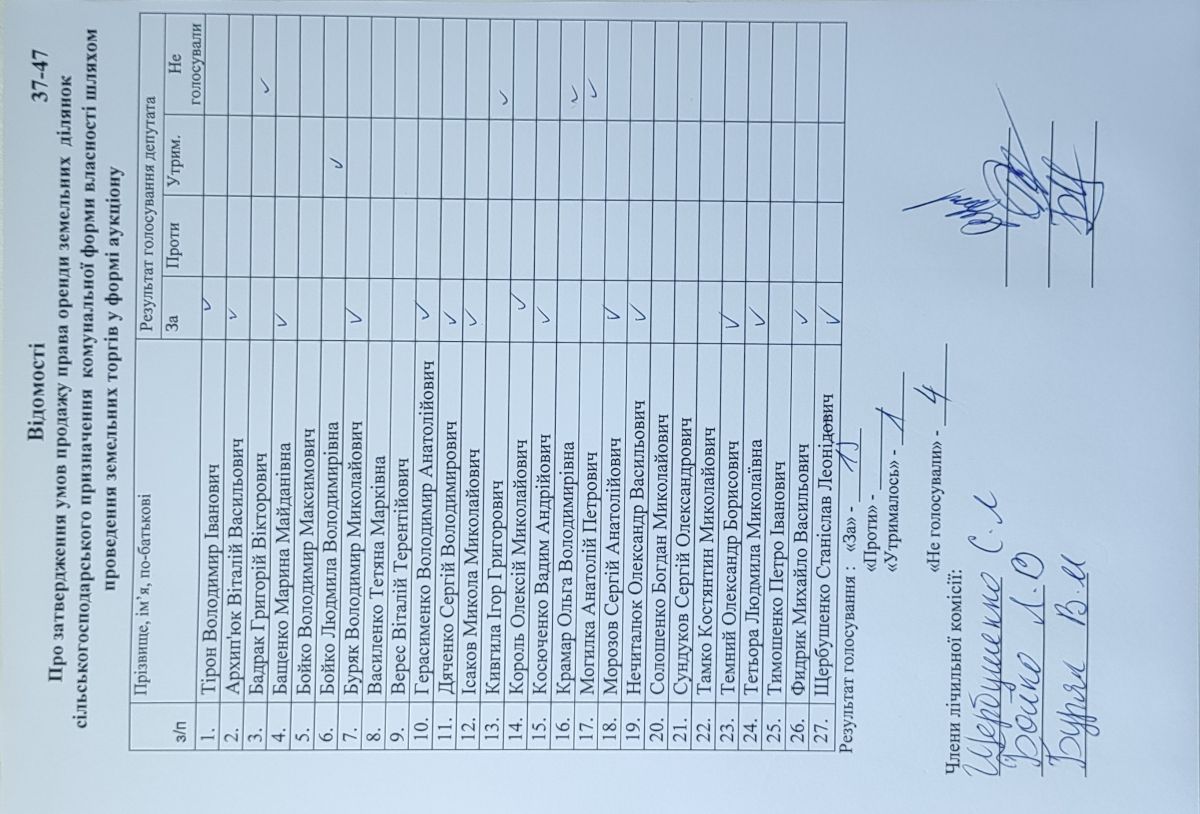 Відомості 37-47
Про затвердження умов продажу права оренди земельних ділянок
сільськогосподарського призначення комунальної форми власності шляхом
проведення земельних торгів у формі аукціону
з/п Прізвище, ім’я, по-батькові Результат голосування депутата
За Проти Утрим. Не голосували
1. Тірон Володимир Іванович
2. Архип'юк Віталій Васильович
3. Бадрак Григорій Вікторович
4. Бащенко Марина Майданівна
5. Бойко Володимир Максимович
6. Бойко Людмила Володимирівна
7. Буряк Володимир Миколайович
8. Василенко Тетяна Марківна
9. Верес Віталій Терентійович
10. Герасименко Володимир Анатолійович
11. Дяченко Сергій Володимирович
12. Ісаков Микола Миколайович
13. Кивгила Ігор Григорович
14. Король Олексій Миколайович
15. Косюченко Вадим Андрійович
16. Крамар Ольга Володимирівна
17. Могилка Анатолій Петрович
18. Морозов Сергій Анатолійович
19. Нечиталюк Олександр Васильович
20. Солошенко Богдан Миколайович
21. Сундуков Сергій Олександрович
22. Тамко Костянтин Миколайович
23. Темний Олександр Борисович
24. Тетьора Людмила Миколаївна
25. Тимошенко Петро Іванович
26. Фидрик Михайло Васильович
27. Щербушенко Станіслав Леонідович
Результат голосування : «За» - 15
«Проти» -
«Утрималось» - 1
«Не голосували» - 4
Члени лічильної комісії:
Щербушенко С.Л
Бойко Л.В
Буряк В.М